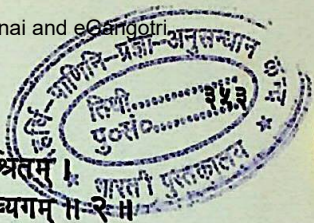 nai and eGangotri
महर्षि-पाणिनि-प्रज्ञा-अनुसन्धान केन्द्र
तिथी..............
पु०सं०.............. ३५३
भारती पुस्तकालय
श्रितम् ।
व्यगम् ॥ २ ॥